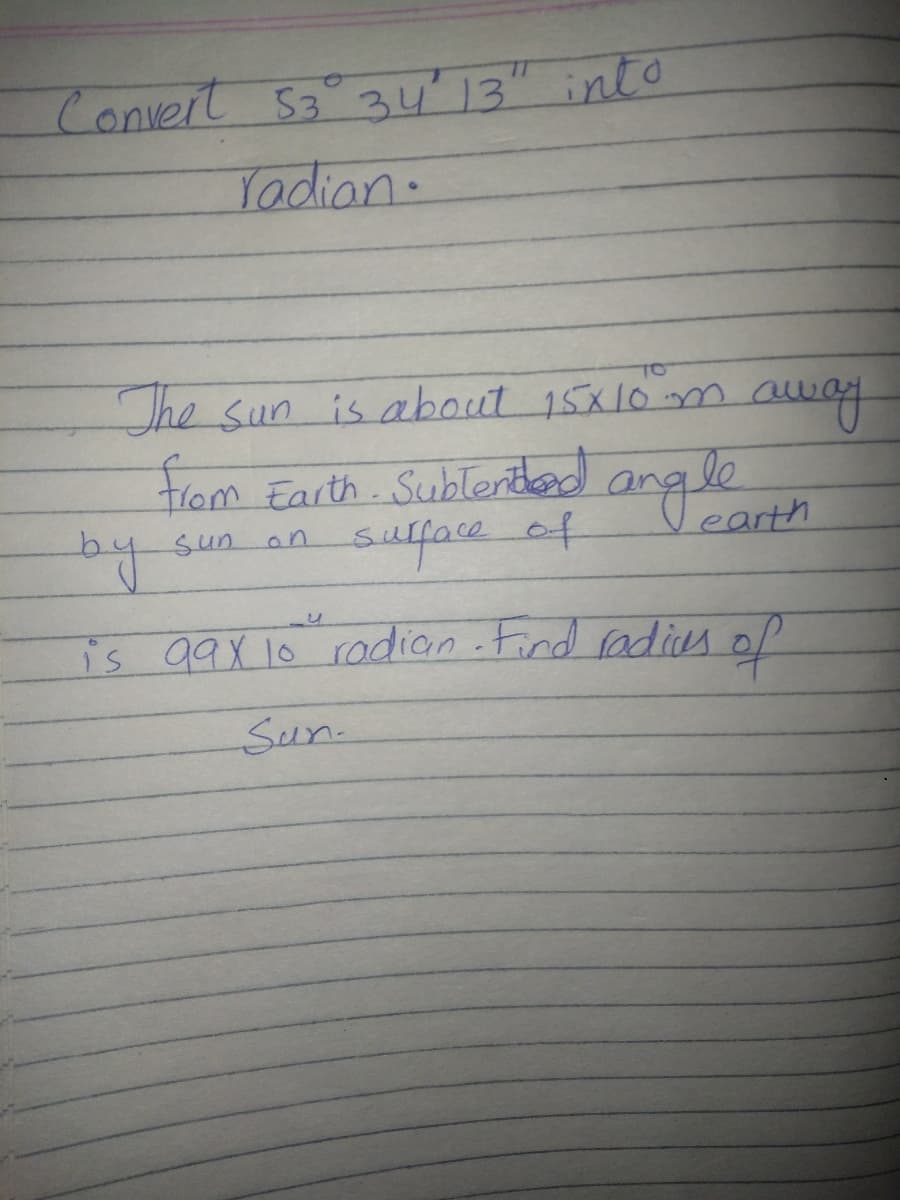 Convert 53° 34' 13" into
radian.
The sun is about 15x10¹⁰ m away
from Earth. Subtended angle
by sun on surface of earth
is 99x10⁻⁴ radian. Find radius of
Sun.